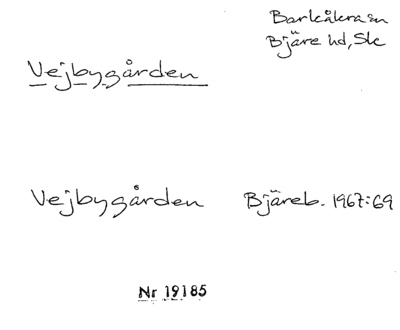 Barkåkra sn
Bjäre hd, Sk
Vejbygården
Vejbygården Bjäreb. 1967:69
Nr 19185